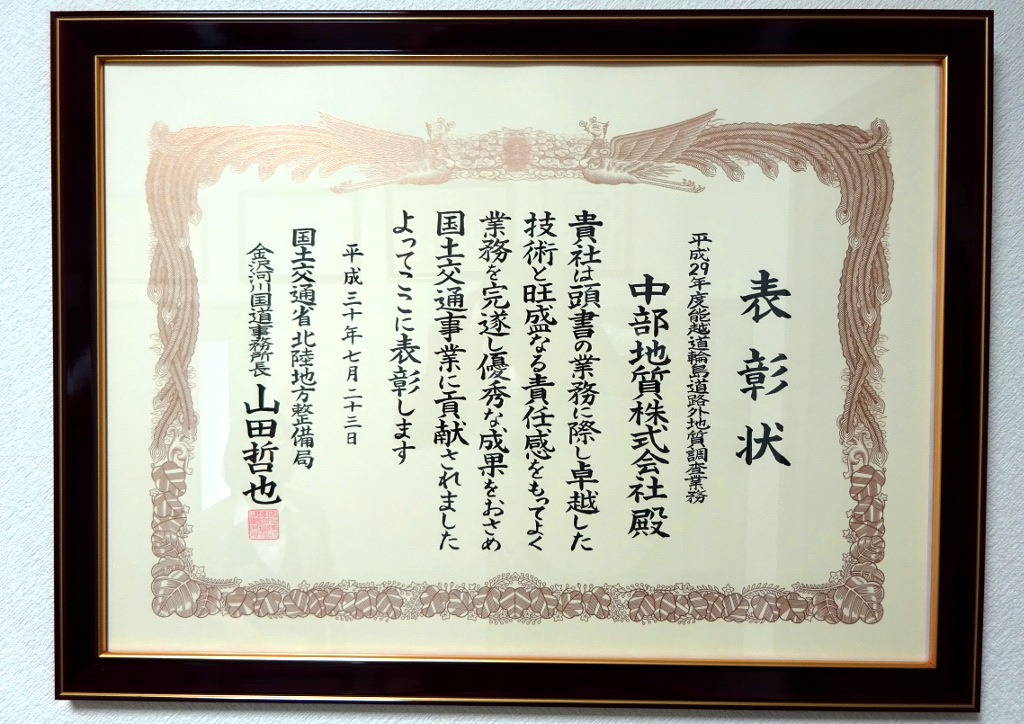 表彰状
平成29年度能越道輪島道路外地質調査業務
中部地質株式会社殿
貴社は頭書の業務に際し卓越した
技術と旺盛なる責任感をもってよく
業務を完遂し優秀な成果をおさめ
国土交通事業に貢献されました
よってここに表彰します
平成三十年七月二十三日
国土交通省北陸地方整備局
金沢河川国道事務所長 山田哲也